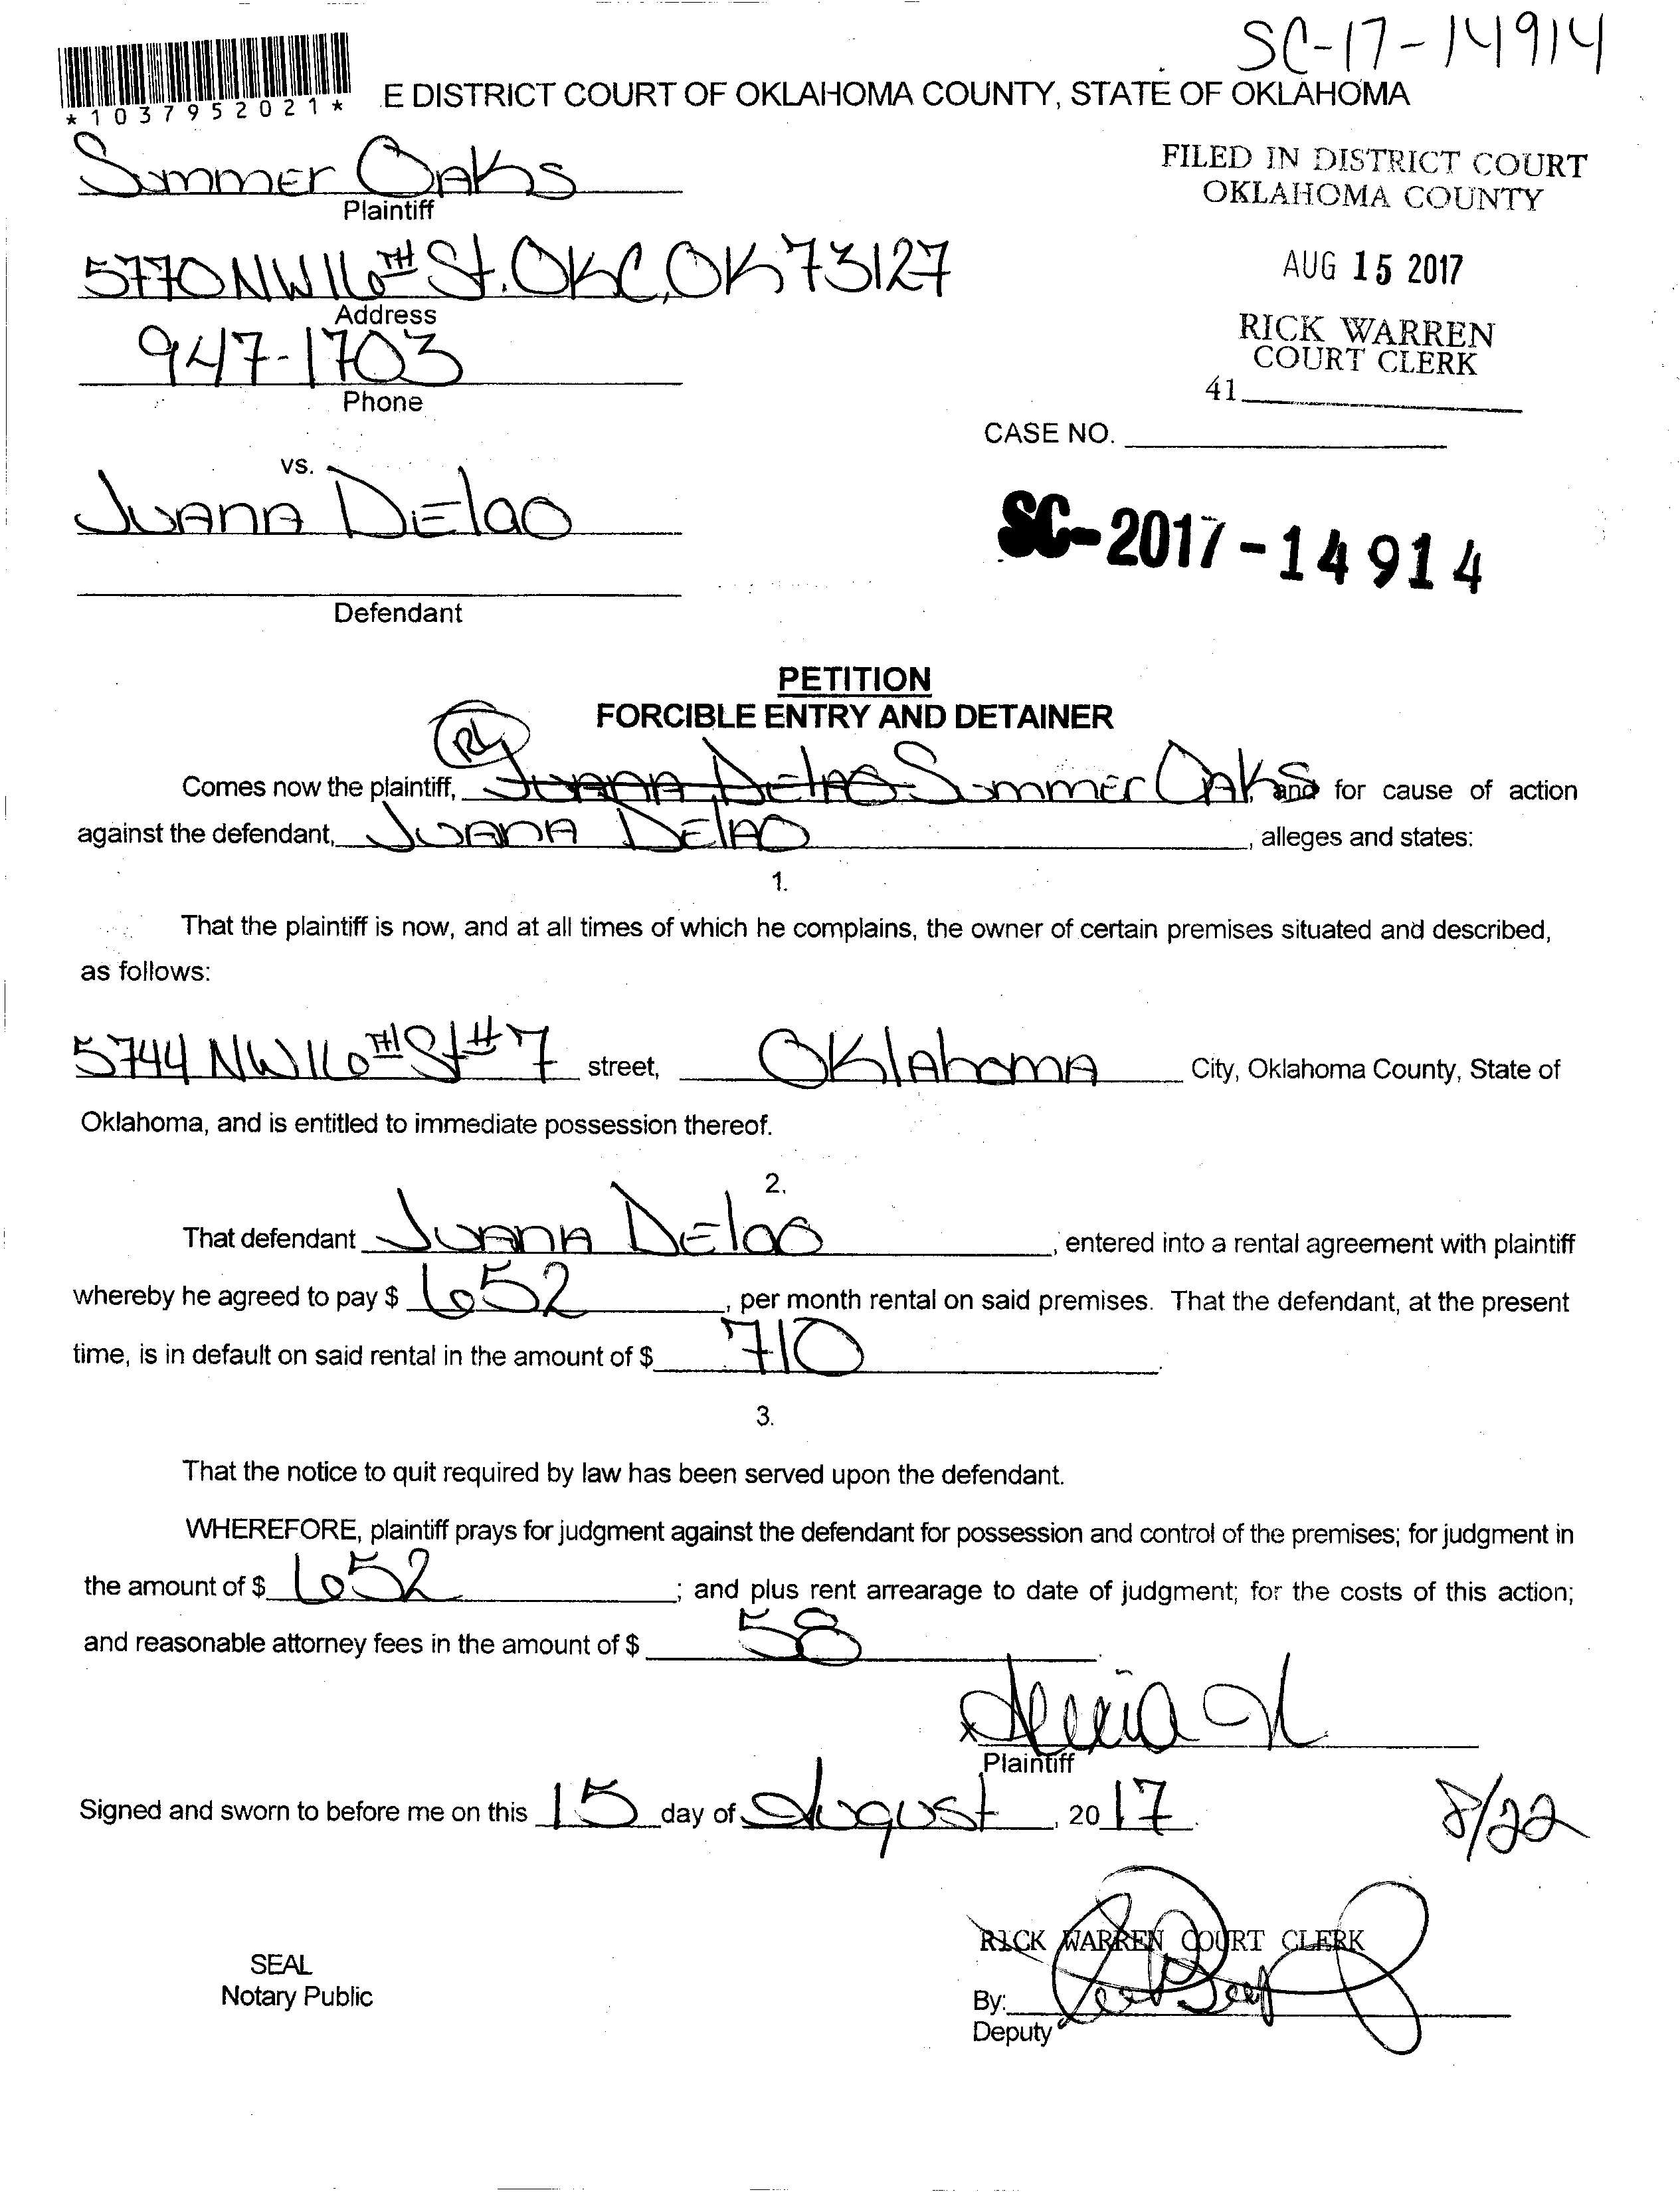 SC-17-14914
*1037952021*
E DISTRICT COURT OF OKLAHOMA COUNTY, STATE OF OKLAHOMA
Summer Oaks
Plaintiff
FILED IN DISTRICT COURT
OKLAHOMA COUNTY
5770 NW 16TH St. OKC, OK 73127
Address
AUG 15 2017
947-1703
Phone
RICK WARREN
COURT CLERK
41
CASE NO.
vs.
Juana Delao
SC-2017-14914
Defendant
PETITION
FORCIBLE ENTRY AND DETAINER
RL
Comes now the plaintiff, Juana Delao Summer Oaks, and for cause of action
against the defendant, Juana Delao, alleges and states:
1.
That the plaintiff is now, and at all times of which he complains, the owner of certain premises situated and described,
as follows:
5744 NW 16TH St #7 street, Oklahoma City, Oklahoma County, State of
Oklahoma, and is entitled to immediate possession thereof.
2.
That defendant Juana Delao, entered into a rental agreement with plaintiff
whereby he agreed to pay $ 652, per month rental on said premises. That the defendant, at the present
time, is in default on said rental in the amount of $ 710.
3.
That the notice to quit required by law has been served upon the defendant.
WHEREFORE, plaintiff prays for judgment against the defendant for possession and control of the premises; for judgment in
the amount of $ 652; and plus rent arrearage to date of judgment; for the costs of this action;
and reasonable attorney fees in the amount of $ 58.
x
Plaintiff
Signed and sworn to before me on this 15 day of August, 2017.
8/22
RICK WARREN COURT CLERK
SEAL
Notary Public
By:
Deputy